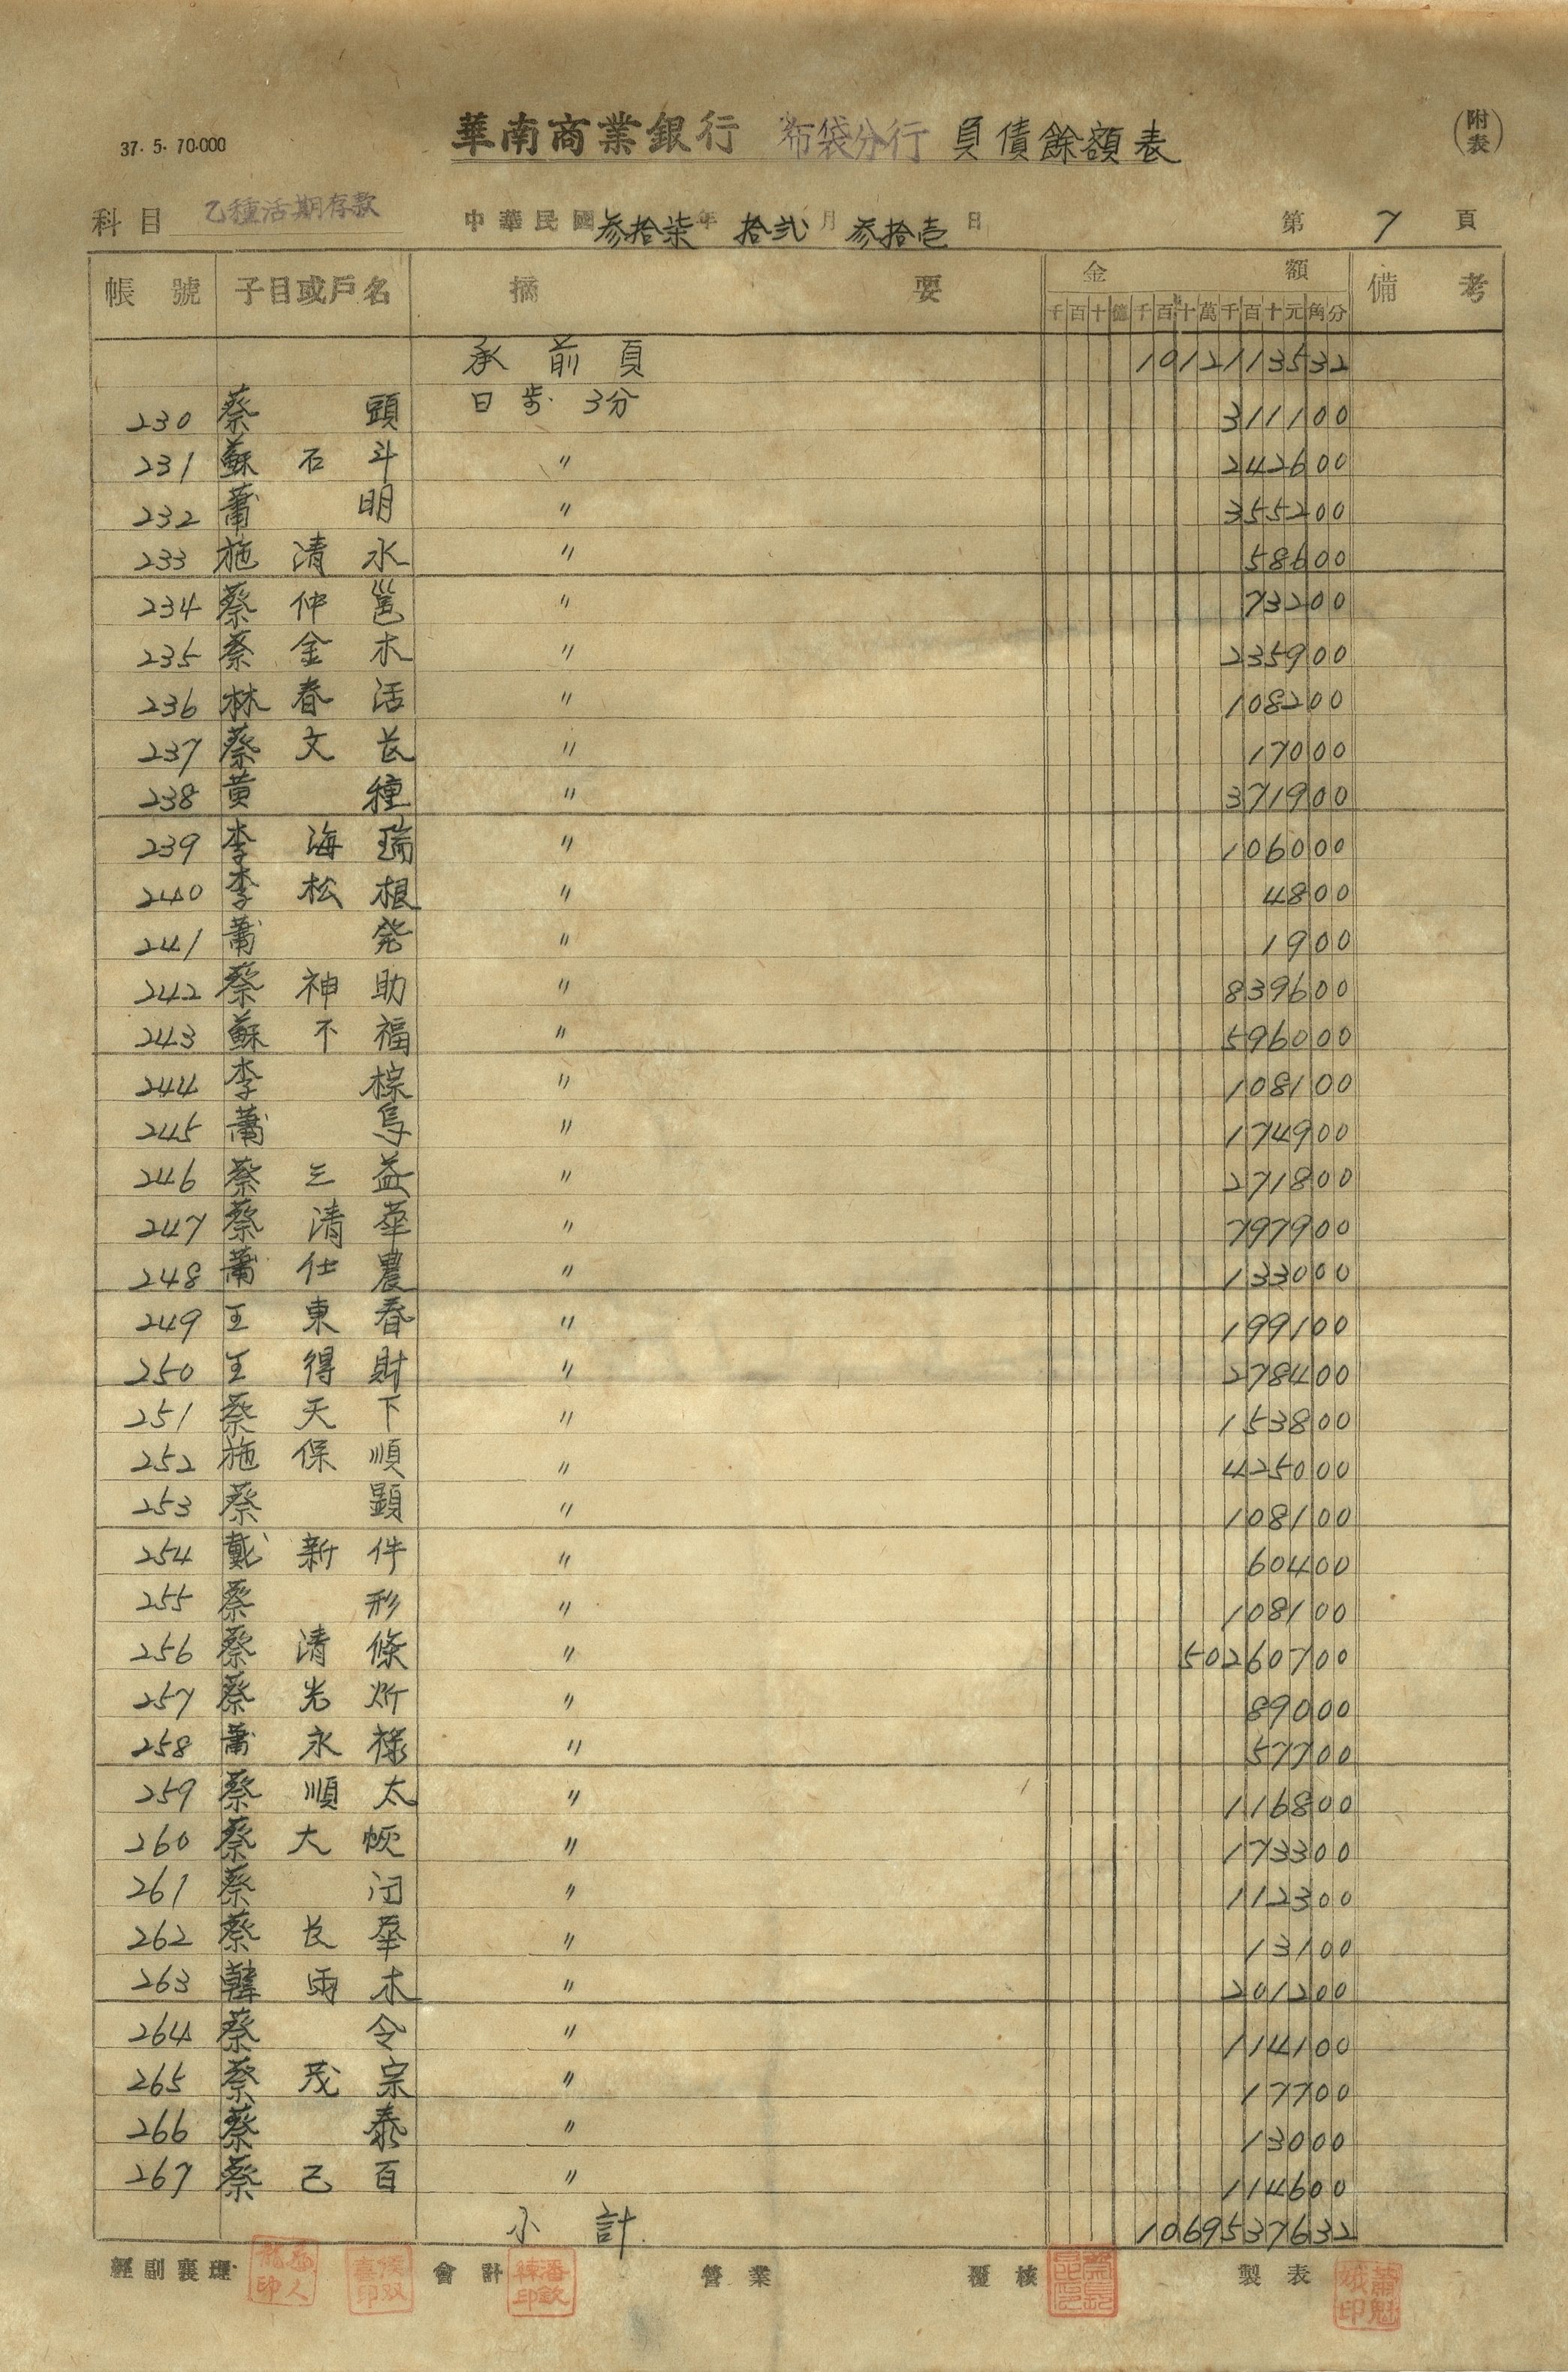 37. 5. 70.000
華南商業銀行 布袋分行 負債餘額表 (附表)
科目 乙種活期存款 中華民國 參拾柒 年 拾弐 月 參拾壱 日 第 7 頁
帳號 子目或戶名 摘要 金額 備考
千百十億千百十萬千百十元角分
承前頁 1012113532
230 蔡頭 日步 3分 311100
231 蘇石斗 〃 242600
232 蕭明 〃 355200
233 施清水 〃 58600
234 蔡仲 〃 73200
235 蔡金木 〃 235900
236 林春活 〃 108200
237 蔡文長 〃 17000
238 黄種 〃 371900
239 李海瑞 〃 106000
240 李松根 〃 4800
241 蕭発 〃 1900
242 蔡神助 〃 839600
243 蘇不福 〃 596000
244 李棕 〃 108100
245 蕭 〃 174900
246 蔡三益 〃 271800
247 蔡清華 〃 797900
248 蕭仕農 〃 133000
249 王東春 〃 199100
250 王得財 〃 278400
251 蔡天下 〃 153800
252 施保順 〃 425000
253 蔡顕 〃 108100
254 戴新件 〃 60400
255 蔡形 〃 108100
256 蔡清條 〃 50260700
257 蔡光炘 〃 89000
258 蕭永祿 〃 57700
259 蔡順太 〃 116800
260 蔡大 〃 173300
261 蔡 〃 112300
262 蔡長華 〃 13100
263 韓雨木 〃 201200
264 蔡令 〃 114100
265 蔡茂宗 〃 17700
266 蔡泰 〃 13000
267 蔡己百 〃 114600
小計 1069537632
經副襄理 會計 營業 覆核 製表